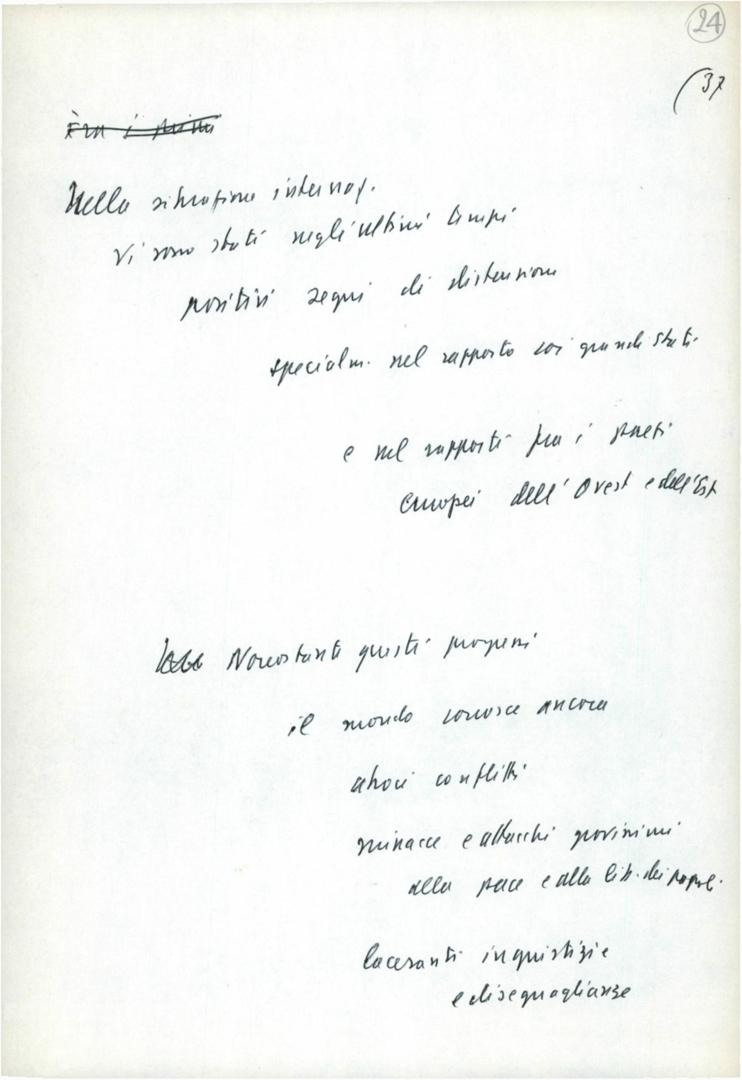 24
(37
Fra i primi
Nella situazione internaz.
Vi sono stati negli ultimi tempi
positivi segni di distensione
specialm. nel rapporto coi grandi Stati
e nel rapporti fra i paesi
europei dell'Ovest e dell'Est
Nonostanti questi progressi
il mondo conosce ancora
atroci conflitti
minacce e attacchi gravissimi
alla pace e alla lib. dei popoli
laceranti ingiustizie
e diseguaglianze